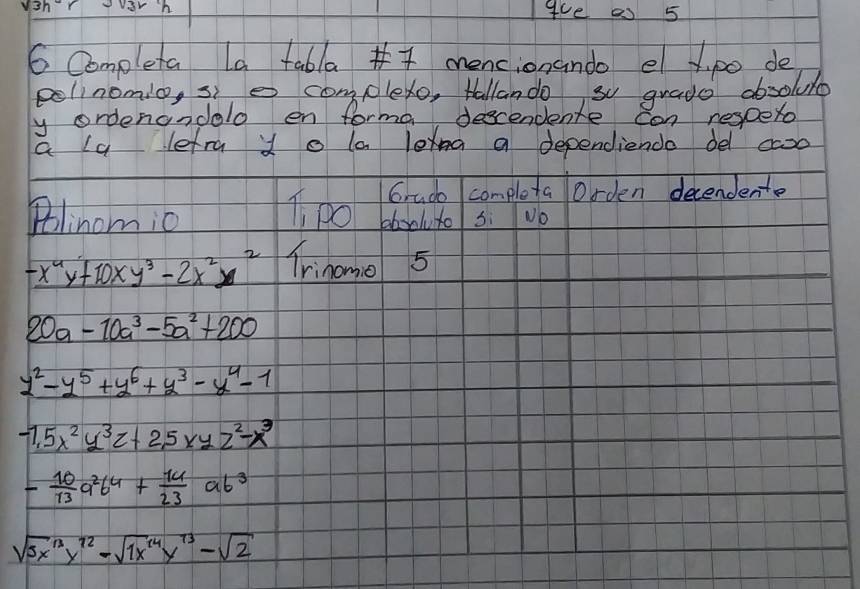 que es 5
6 Completa la tabla #7 mencionando el tipo de
polinomio, si es completo, Hallando su grado absoluto
y ordenandolo en forma descendente con respeto
a la letra y o la letra a dependiendo del caso
Polinomio Tipo Grado absoluto completa Si No Orden decendente
-x⁴y+10xy³-2x²y² Trinomio 5
20a-10a³-5a²+200
y²-y⁵+y⁶+y³-y⁴-1
-1,5x²y³z+2,5xyz²-x³
-10/13 a²b⁴ + 14/23 ab³
√5x¹³y¹²-√7x¹⁴y¹³-√2